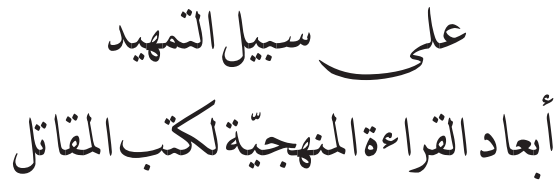 على سبيل التمهيد
أبعاد القراءة المنهجيّة لكتب المقاتل